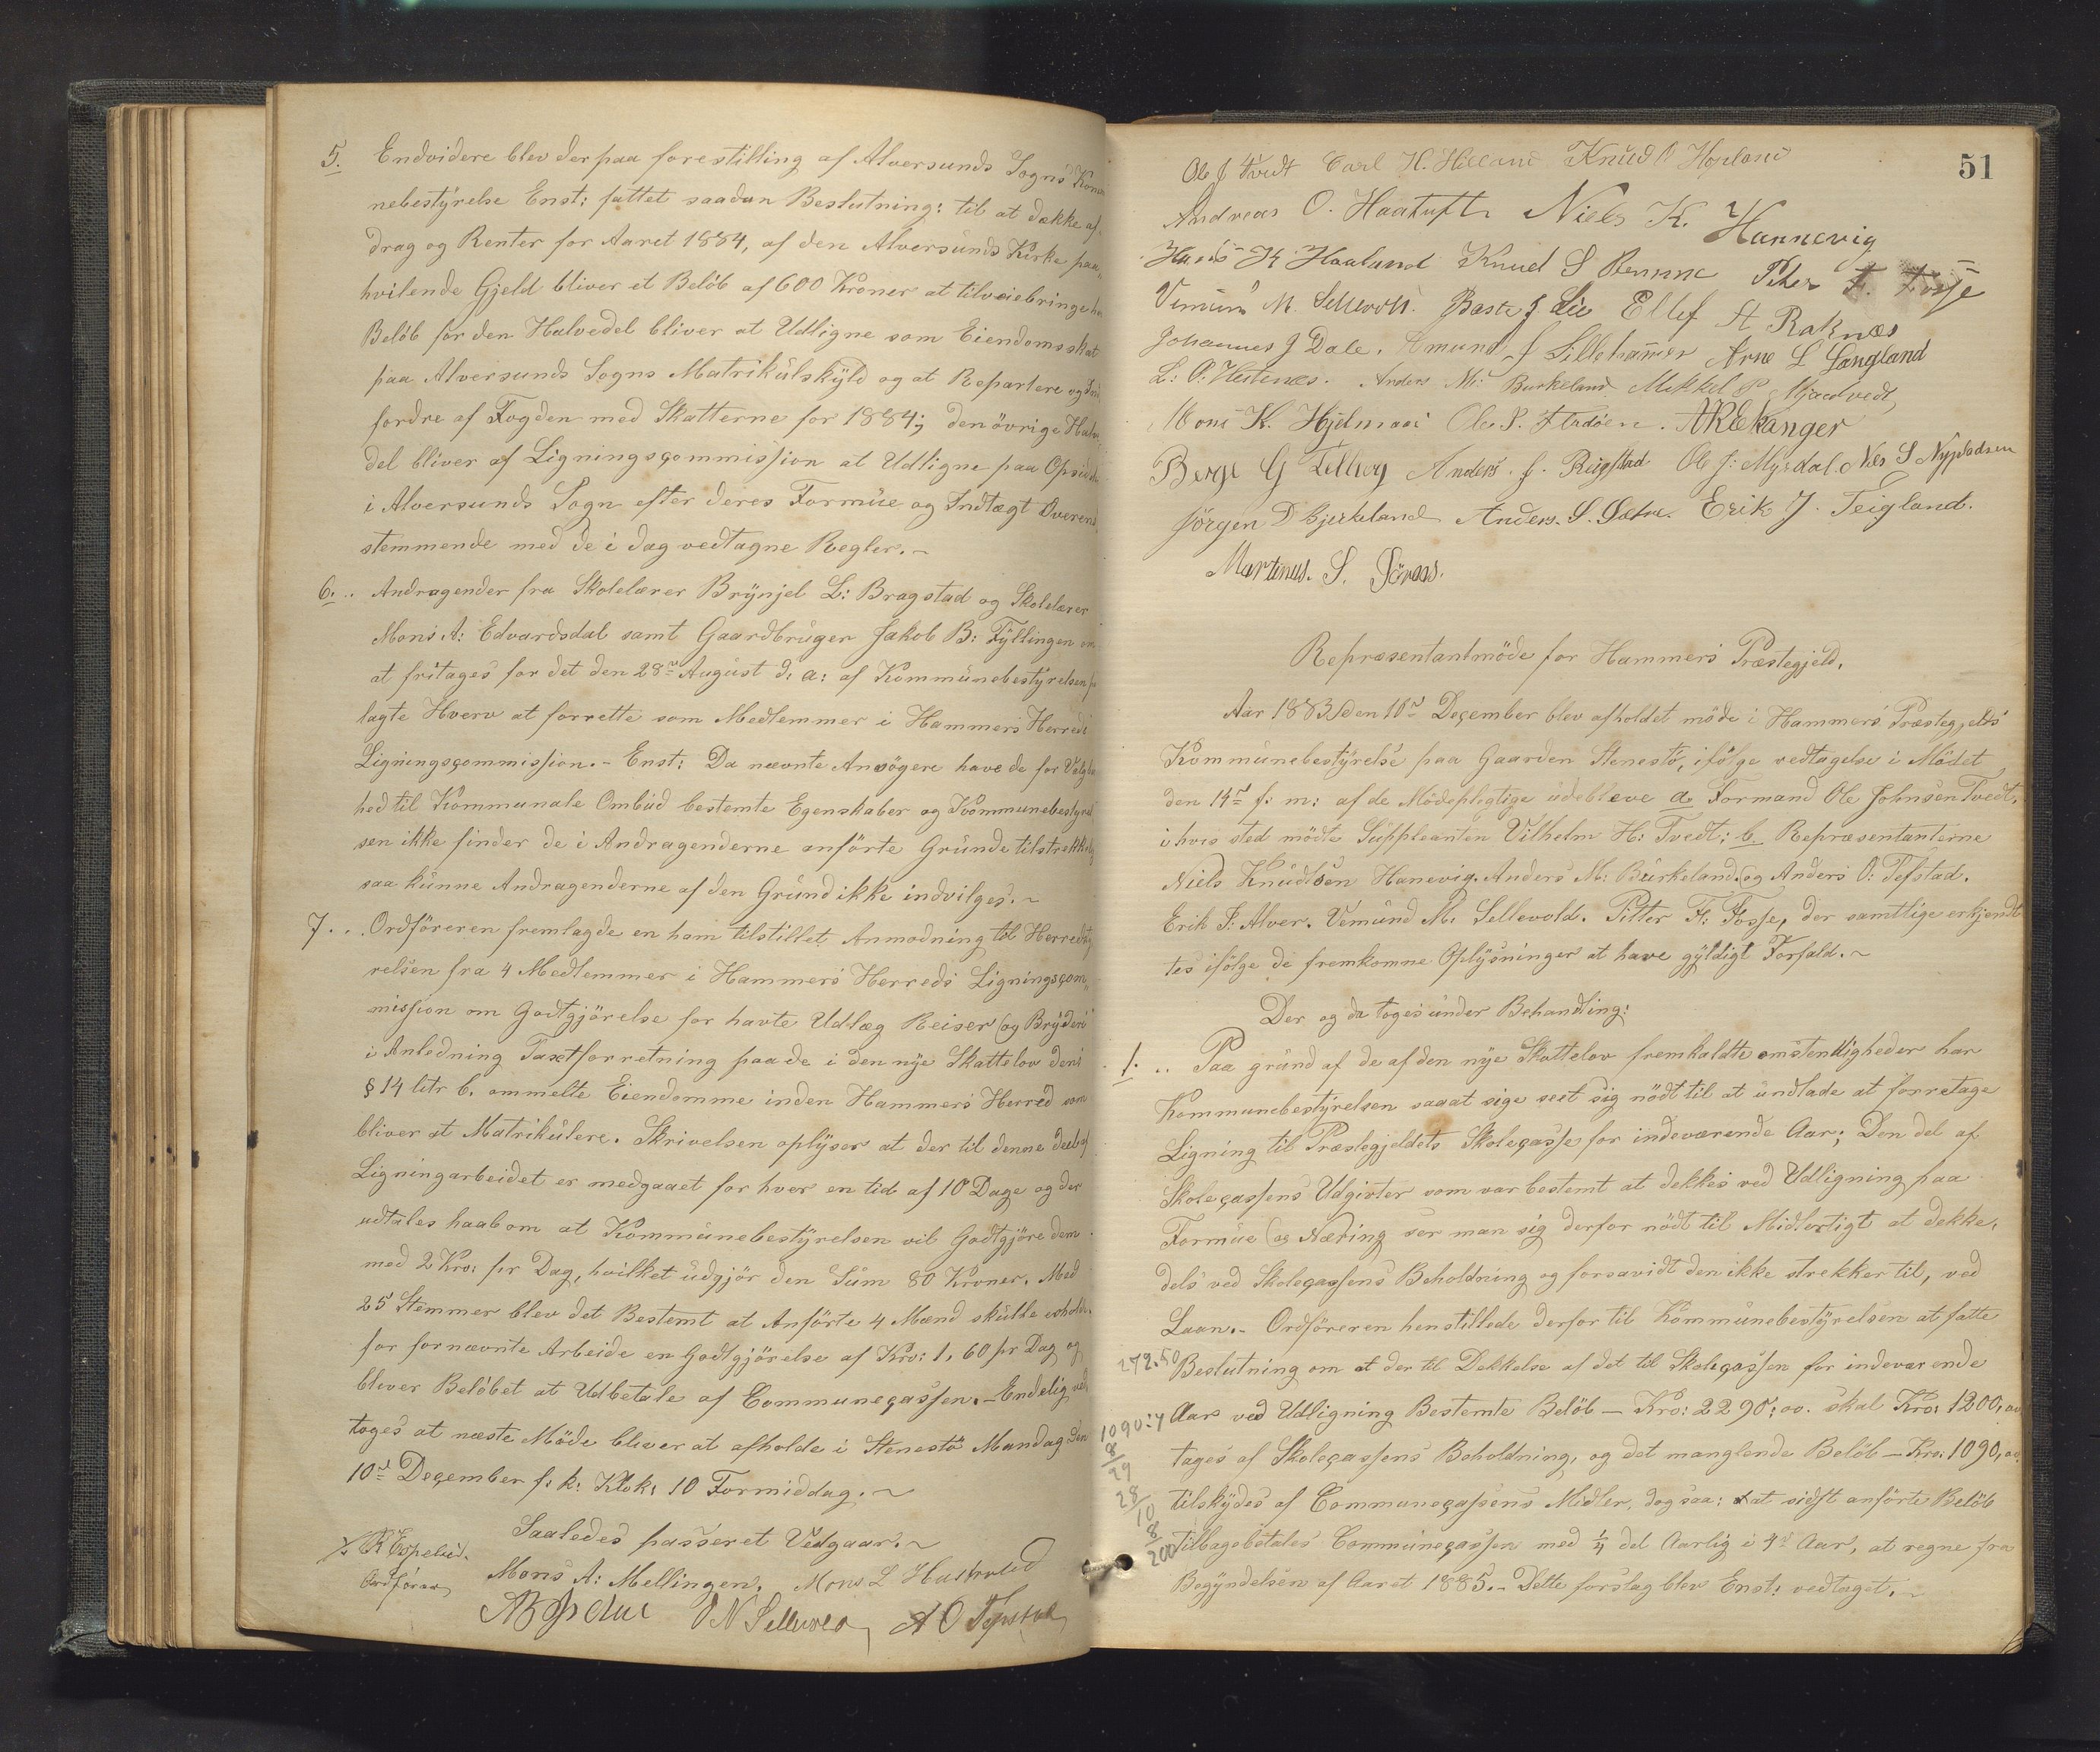 5. Endvidere blev der paa forestilling af Alversunds Sogns Kom
nebestÿrelse Enst: fattet saadan Beslutning: til at dække af
drag og Renter for Aaret 1884, af den Alversunds Kirke paa
hvilende Gjeld bliver et Beløb af 600 Kroner at tilveiebringe
Beløb for den Halvedel bliver at Udligne som Eiendomsskat
paa Alversunds Sogns Matrikülskÿld og at Repartere og
fordre af Fogden med Skatterne for 1884; den övrige Halv
del bliver af Ligningscommission at Udligne paa Opsid
i Alversunds Sogn efter deres Formüe og Indtægt Overens
stemmende med de i dag vedtagne Regler.~
6... Andragender fra Skolelærer Brÿnjel L: Bragstad og Skolelærer
Mons A: Edvardsdal samt Gaardbrüger Jakob B: Fÿllingen om
at fritages for det den 28de August d: a: af Kommünebestÿrelsen
lagte Hverv at forrette som Medlemmer i Hammers Herreds
Ligningscommission.- Enst: Da nævnte Ansögere have de for Valgbar
hed til Kommunale Ombüd bestemte Egenskaber og Kommunebestyrel
sen ikke finder de i Andragenderne anförte Gründe tilstrekkelig
saa künne Andragenderne af den Gründ ikke indvilges.~
7... Ordföreren fremlagde en ham tilstillet Anmodning til Herredsty
relsen fra 4 Medlemmer i Hammers Herreds Ligningscom
mission om Godtgjörelse for havte Udlæg Reiser og Brÿderi
i Anledning Taxtforretning paa de i den nÿe Skattelov dens
§ 14 litr b. ommelte Eiendomme inden Hammers Herred som
bliver at Matrikülere. Skrivelsen oplÿser at der til denne deel af
Ligningarbeidet er medgaaet for hver en tid af 10 Dage og der
udtales haab om at Kommünebestÿrelsen vil Godtgjöre dem
med 2 Kro: pr Dag, hvilket üdgjör den Süm 80 Kroner. Med
25 Stemmer blev det Bestemt at Anförte 4 Mænd skülle erholde
for fornævnte Arbeide en Godtgjörelse af Kro: 1,60 pr Dag og
bliver Belöbet at Udbetale af Communecassen.- Endelig ved
toges at næste Möde bliver at afholde i Stenestö Mandag den
10de December f: k: Klok: 10 Formiddag.~
Saaledes passeret Vedgaar.~
R Espelid.
Ordförer
Mons A: Mellingen. Mons L Husholid
A O Tepstad
51
Ole J Tvedt Carl H. Helland Knud O Hopland
Andreas O. Haatuft Niels K. Hannevig
Hans K Haaland Knud S Remme Peter F. Fosse
Vemund M. Sellevoll. Baste J Lie Ellef A Raknæs
Johannes J Dale. Amund J Lillehammer Arne L Langland
L: O: Hestenes. Anders M: Burkeland Mikkel P. Mjaadvedt
Mons K. Hjelmaas Ole P. Strdöen. A R Ekanger
Berge G Fetberg Anders. J. Reigstad Ole J: Myrdal. Nils S Nypladsen
Jörgen D Bjerkeland Anders. S. Sætre. Erik J. Teigland.
Martinus. S. Söraas.
Repræsentantmöde for Hammers Præstegjeld.
Aar 1883 den 10de December blev afholdet möde i Hammers Præstegjelds
Kommünebestÿrelse paa Gaarden Stenestö, ifölge vedtagelse i Mödet
den 14de f: m: af de Mödepligtige üdebleve a, Formand Ole Johnsen Tvedt,
i hvis sted mödte Süppleanten Vilhelm H: Tvedt; b. Repræsentanterne
Niels Knüdsen Hanevig. Anders M: Bürkeland. og Anders O: Tefstad.
Erik J: Alver. Vemünd M: Sellevold. Pitter F: Fosse, der samtlige erkjend
tes ifölge de fremkomne Oplÿsninger at have gÿldigt Forfald.~
Der og da toges ünder Behandling:
1... Paa gründ af de af den nÿe Skattelov fremkaldte omstendligheder har
Kommunebestÿrelsen saaat sige seet sig nödt til at ündlade at forretage
Ligning til Præstegjeldets Skolecasse for indeværende Aar; Den del af
Skolecassens Udgivter som var bestemt at dekkes ved Udligning paa
Formüe og Næring ser man sig derfor nödt til Midlertigt at dekke,
dels ved Skolecassens Beholdning og forsavidt den ikke strekker til, ved
Laan.- Ordföreren henstillede derfor til Kommünebestÿrelsen at fatte
272.50 Beslutning om at der til Dekkelse af det til Skolecassen for indeværende
1090:4 Aar ved Udligning Bestemte Belöb – Kro: 2290,00. skal Kro: 1200,00
8
29 tages af Skolecassens Beholdning, og det manglende Belöb – Kro: 1090,00
28
10 tilskÿdes af Communecassens Midler, dog saa: at sidst anförte Belöb
8
200 tilbagebetales Communecassen med 1/4 del Aarlig i 4re Aar, at regne fra
Begÿndelsen af Aaret 1885.- Dette forslag blev Enst: vedtaget.~